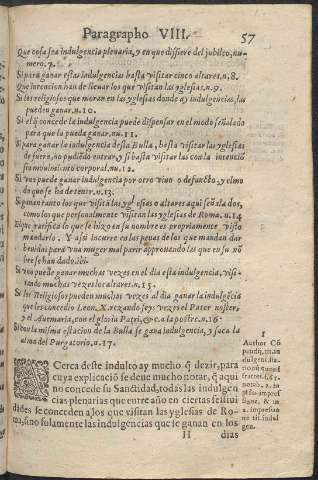 Paragrapho VIII. 57
Que cosa sea indulgencia plenaria, y en que dissiere del jubileo, nu-
mero. 7.
Si para ganar estas indulgencias basta visitar cinco altares. n. 8.
Que intencion han de lleuar los que visitan las yglesias. n. 9.
Si los religiosos que moran en las yglesias donde ay indulgencias, las
pueden ganar. n. 10.
Si el q̃ concede la indulgencia puede dispensar en el modo señalado
para que lo pueda ganar. nu. 11.
Si para ganar la indulgencia desta Bulla, basta visitar las yglesias
de fuera, no pudiẽdo entrar, y si basta visitar las con la intenció
sin mouimiento corporal. nu. 12.
Si vno puede ganar indulgencia por otro viuo o defuncto, y el mo
do que se ha de tener. n. 13.
Si ganan tanto los que visitã las yglesias o altares aqui señalados,
como los que personalmente visitan las yglesias de Roma. n. 14
Eique ratifica lo que se hizo en su nombre es propriamente visto
mandarlo. Y assi incurre en las penas de los que mandan dar
breuaje para una muger mal parir approuando las que en su nõ
bre se han dado. ibi.
Si vno puede ganar muchas vezes en el dia esta indulgencia, visi-
tando muchas vezes los altares. n. 15.
Si los Religiosos pueden muchas vezes al dia ganar la indulgẽcia
que les concedio Leon. X. rezando seys vezes el Pater noster,
y el Auemaria, con el gloria Patri, &c. a la postre. n. 16.
Si con la misma estacion de la Bulla se gana indulgencia, y saca la
alma del Purgatorio. n. 17.
ACerca deste indulto ay mucho q̃ dezir, para
cuya explicació se deue mucho notar, q̃ aqui
no concede su Sanctidad, todas las indulgen
cias plenarias que entre año en ciertas
didies se conceden a los que visitan las yglesias de Ro-
ma, sino solamente las indulgencias que se ganan en los
H dias
1
Author Cõ
pendij, ma in
dulgent.
q̃ numi
frater. 65.
notab. 2. in
& in
2. impressio
ne tit. indul
gen.